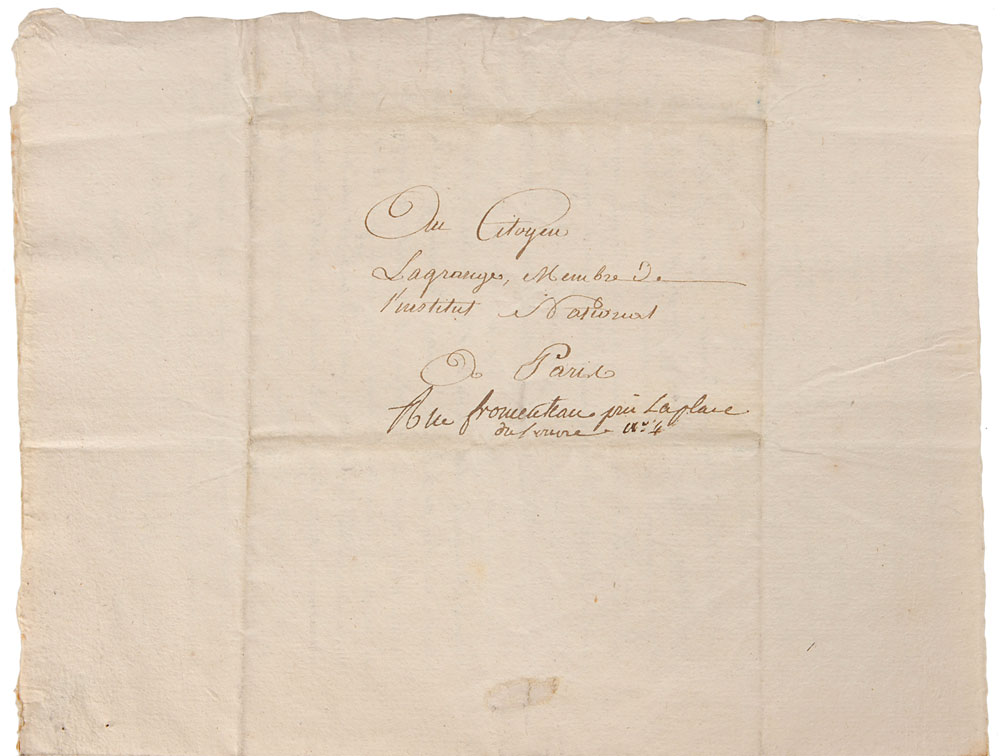 Au Citoyen
Lagrange, Membre de
l'institut National
De Paris
Rue fromenteau près La place
du Louvre n.º 4